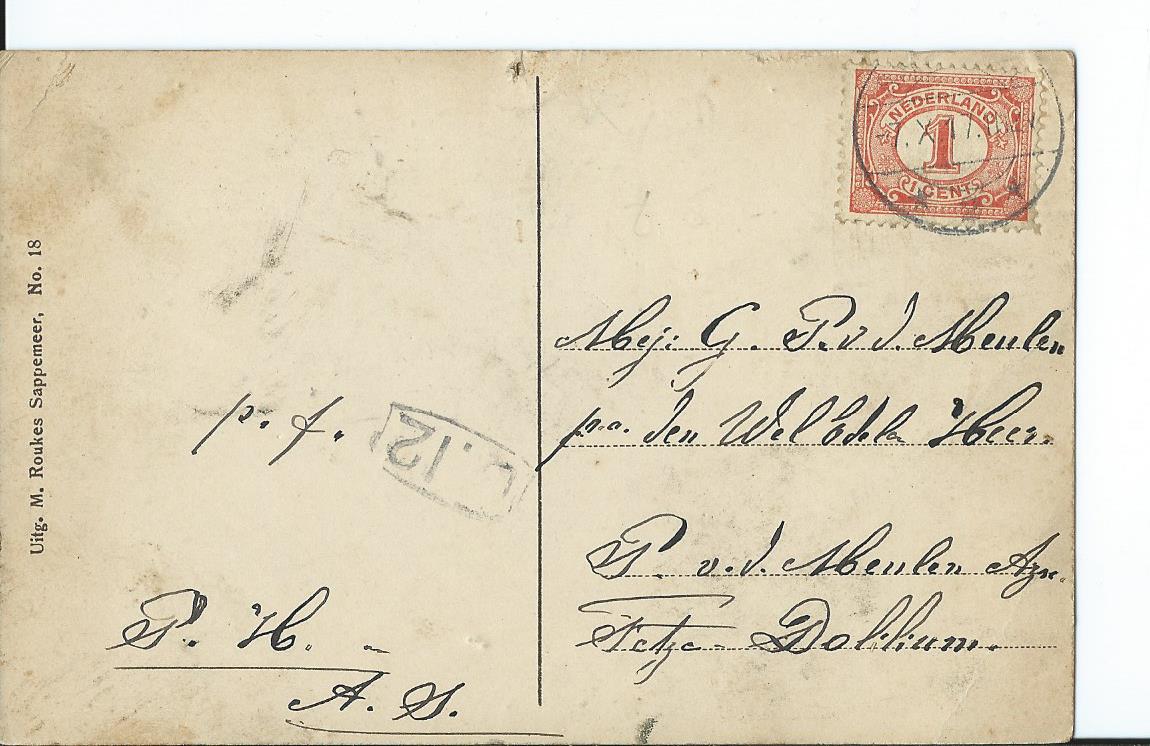 Uitg. M. Roukes Sappemeer, No. 18
p. f.
P. H.
A. S.
NEDERLAND
1
1 CENT
Mej: G. P. v d. Meulen
p.a. den WelEdele Heer.
P. v. d. Meulen Azn.
Dokkum.